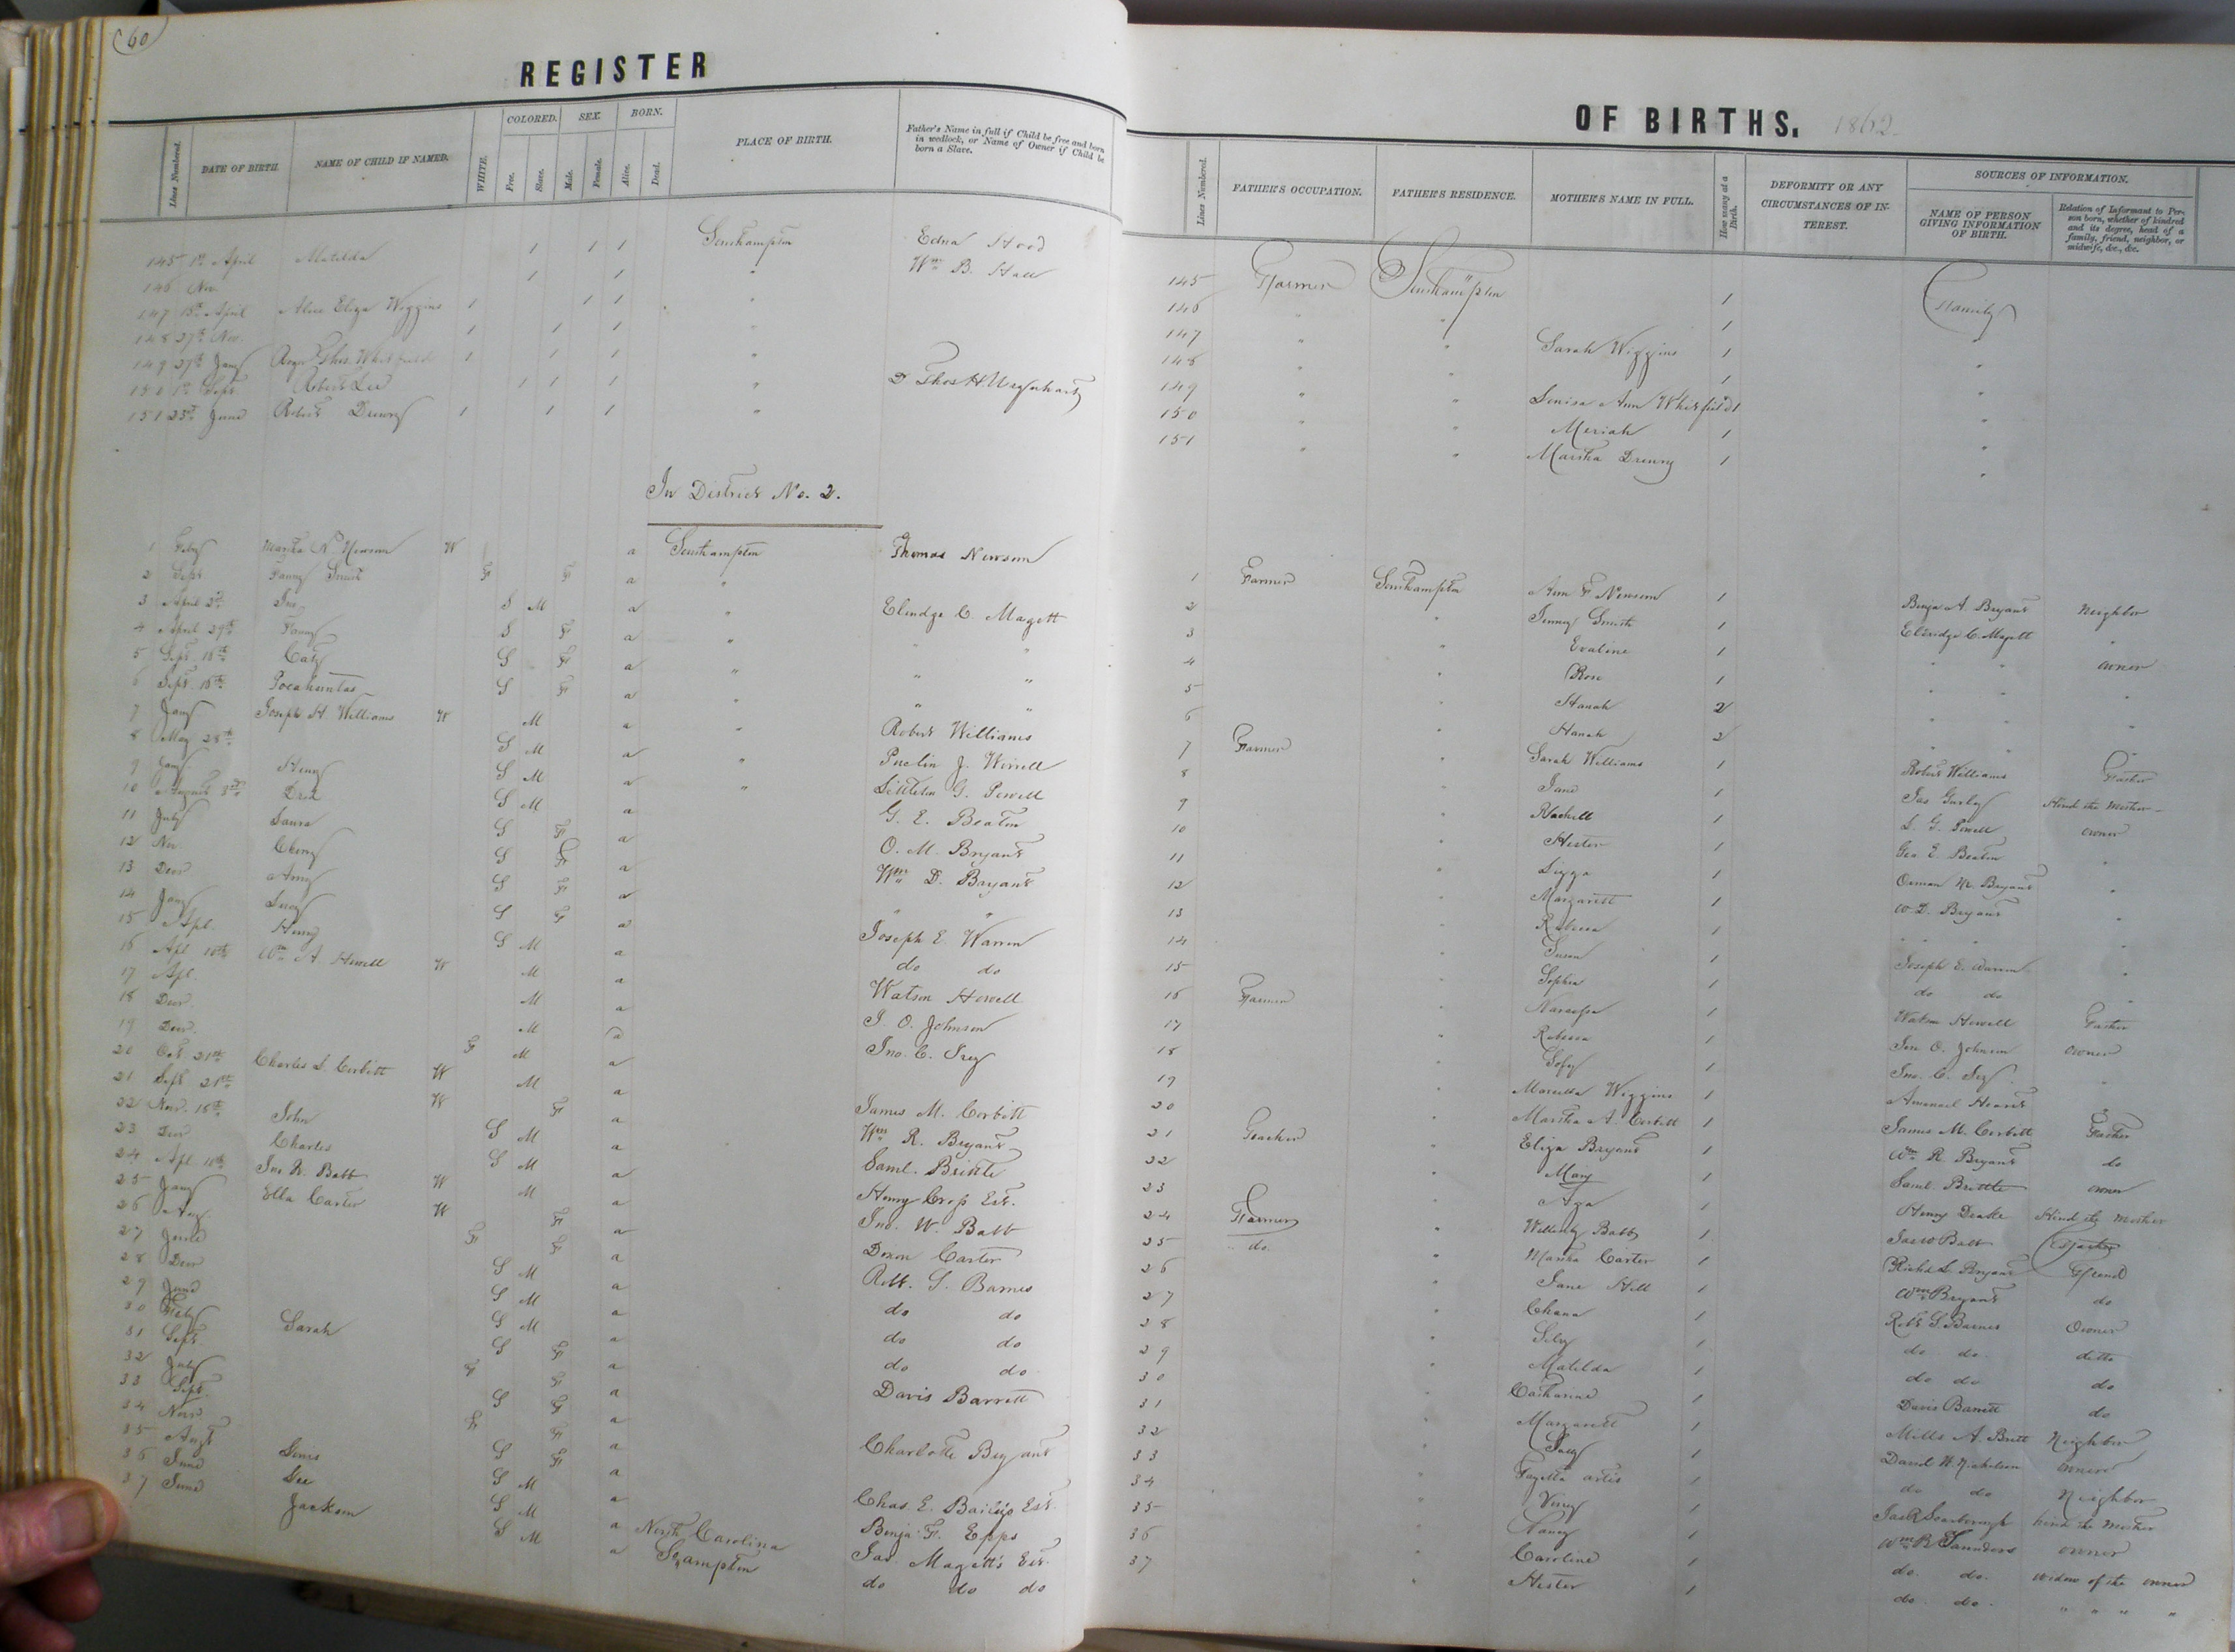 60
REGISTER
Lines Numbered. DATE OF BIRTH. NAME OF CHILD IF NAMED. WHITE. COLORED. Free. Slave. SEX. Male. Female. BORN. Alive. Dead. PLACE OF BIRTH. Father's Name in full if Child be free and born in wedlock, or Name of Owner if Child be born a Slave.
145 1st April Matilda 1 1 1 Southampton Edna Stood
146 Nov. 1 1 " Wm. B. Hall
147 15th April Alice Eliza Wiggins 1 1 1 "
148 27th Nov. 1 1 1 "
149 27th Jany Thos. Whitfield 1 1 1 "
150 1st Sept Robert Lee 1 1 1 " Dr. Thos H. Urquhart
151 25th June Robert Drewry 1 1 1 "
In District No. 2.
1 Feby Martha N. Newsom W a Southampton Thomas Newsom
2 Sept Fanny Smith F F a "
3 April 2d Jno. S M a " Elindge C. Magett
4 April 29th Fanny S F a " " "
5 Sept. 18th Caty S F a " " "
6 Sept. 18th Pocahuntas S F a " " "
7 Jany Joseph H. Williams W M a " Robert Williams
8 May 28th S M a " Puclin J. Worrell
9 Jany Henry S M a " Littleton G. Powell
10 August 3rd Dred S M a G. E. Beaton
11 July Laura S F a O. M. Bryant
12 Nov. S F a Wm. D. Bryant
13 Decr Amy S F a " "
14 Jany Lucy S F a Joseph E. Warren
15 Apl. Henry S M a do do
16 Apl 10th Wm. A. Howell W M a Watson Howell
17 Apl. M a J. O. Johnson
18 Decr. M a Jno. C. Ivey
19 Decr. F M a
20 Oct. 21st Charles S. Corbitt W M a James M. Corbitt
21 Sept 21st W F a Wm. R. Bryant
22 Nov. 15th John S M a Saml. Brittle
23 Decr Charles S M a Henry Crop Est.
24 Apl. 10th Jno. R. Babb W M a Jno. W. Babb
25 Jany Ella Carter W F a Dixon Carter
26 Aug. F F a
27 June S M a Robt. S. Barnes
28 Decr S M a do do
29 June S M a do do
30 Feby Sarah S F a do do
31 Sept. F a Davis Barrett
32 July S F a
33 Sept. F a Charlotte Bryant
34 Novr. S F a
35 Augt S M a Chas. E. Bailey's Est.
36 June Lee S M a North Carolina Benja. F. Epps
37 June Jackson S M a Shampton Jas. Magett's Est.
do do do
OF BIRTHS. 1862.
Lines Numbered. FATHER'S OCCUPATION. FATHER'S RESIDENCE. MOTHER'S NAME IN FULL. How many at a Birth. DEFORMITY OR ANY CIRCUMSTANCES OF INTEREST. SOURCES OF INFORMATION. NAME OF PERSON GIVING INFORMATION OF BIRTH. Relation of Informant to Person born, whether of kindred and its degree, head of a family, friend, neighbor, or midwife, &c., &c.
145 Farmer Southampton 1 Family
146 " " 1 "
147 " " Sarah Wiggins 1 "
148 " " 1 "
149 " " Louisa Ann Whitfield 1 "
150 " " Meriah 1 "
151 " " Martha Drewry 1 "
1 Farmer Southampton Ann F. Newsom 1 Benja A. Bryant Neighbor
2 " Jenny Smith 1 Elbridge C. Magett "
3 Evaline 1 " " owner
4 " Rose 1 " " "
5 Hanah 2 " " "
6 " Hanah 2 " " "
7 Farmer " Sarah Williams 1 Robert Williams Father
8 " Jane 1 Jas Gurley Hired the Mother
9 " Rachell 1 L. G. Powell owner
10 " Hester 1 Geo. E. Beaton "
11 " Lizza 1 Orman M. Bryant "
12 " Margarett 1 W. D. Bryant "
13 " Rebecca 1 " " "
14 " Susan 1 Joseph E. Warren "
15 " Sophia 1 do do "
16 Farmer " 1 Watson Howell Father
17 " Rebecca 1 Jno O. Johnson owner
18 " Sofy 1 Jno. C. Ivy "
19 " Marcella Wiggins 1
20 " Martha A. Corbitt 1 James M. Corbitt Father
21 Teacher " Eliza Bryant 1 Wm R. Bryant do
22 " Mary 1 Saml. Brittle owner
23 " Aza 1 Henry Drake Hired the Mother
24 Farmer " Babb 1 Jas W Babb Father
25 do. " Martha Carter 1 Richd L. Bryant Friend
26 " Jane Hill 1 Wm Bryant do
27 " Chana 1 Robt S. Barnes Owner
28 " Silvy 1 do do ditto
29 " Matilda 1 do do do
30 " Catharine 1 Davis Barrett do
31 " Margarett 1 Mills A. Britt Neighbor
32 " Lucy 1 David W. Nicholson owner
33 " Fayetta Artis 1 do do Neighbor
34 " Viney 1 Jas R Scarborough hired the Mother
35 " Nancy 1 Wm R Saunders owner
36 " Caroline 1 do. do. widow of the owner
37 " Hester 1 do do. " " " "